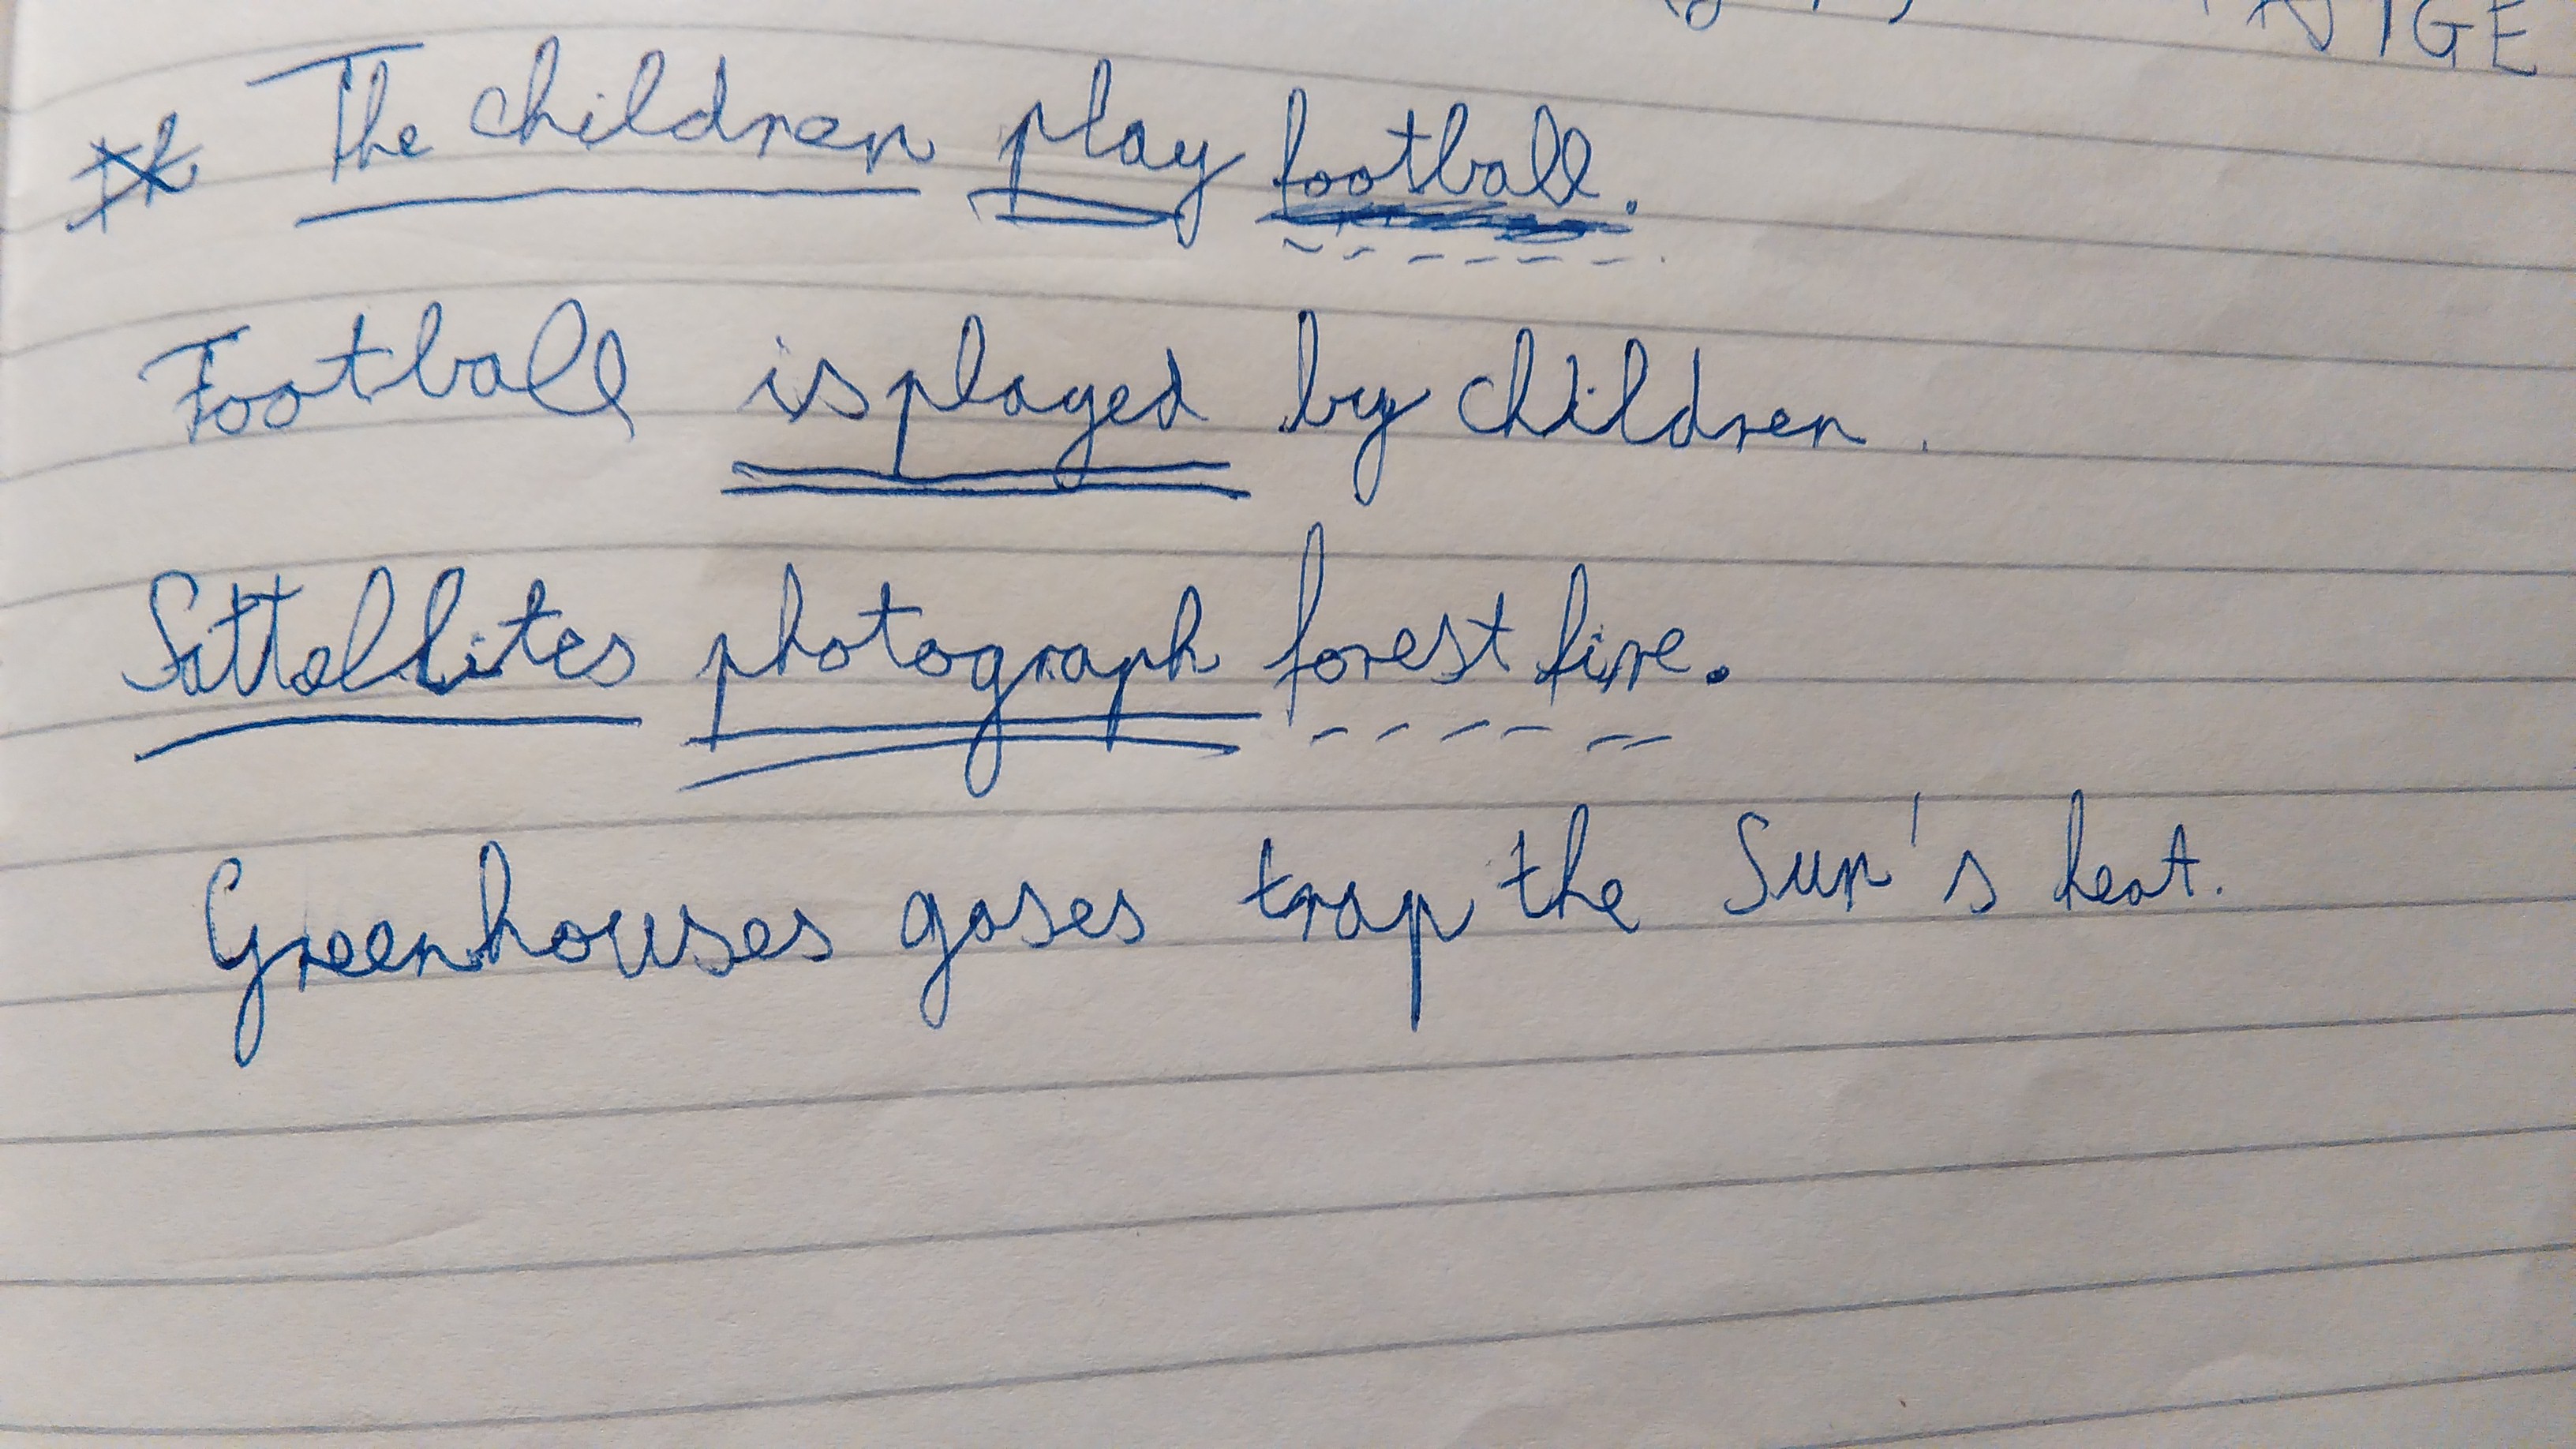 The children play football.
Football is played by children.
Sattellites photograph forest fire.
Greenhouses gases trap the Sun's heat.